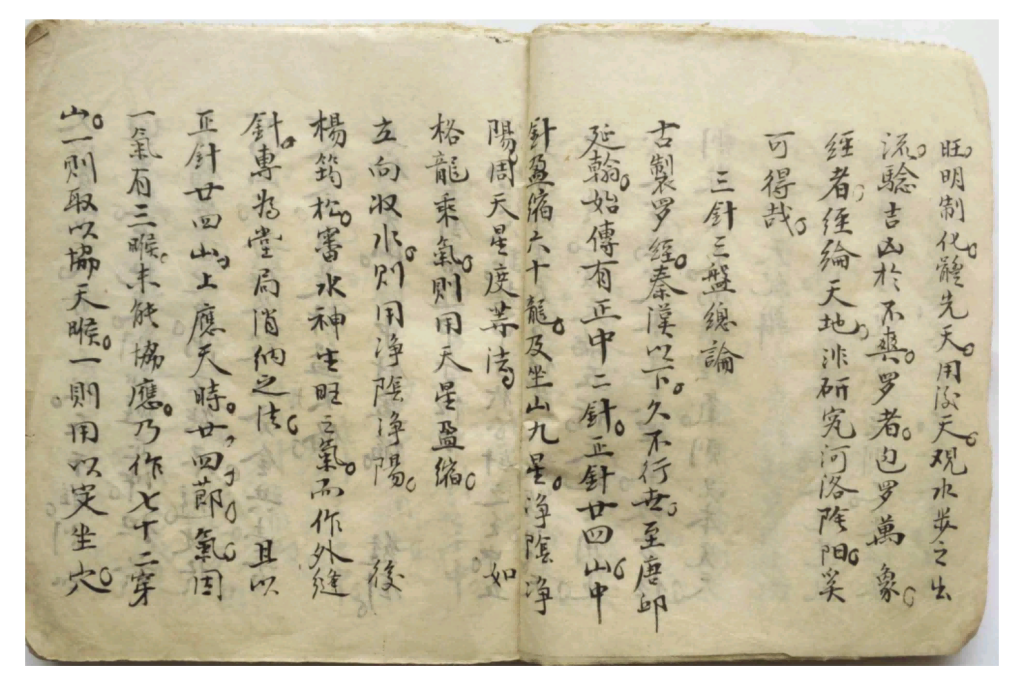 旺。明制化。體先天。用後天。观水步之出
流。驗吉凶於不爽。罗者。包罗萬象。
經者。經綸天地。非研究河洛陰阳。奚
可得哉。
三針三盤總論
古製罗經。秦漢以下。久不行世。至唐邱
延翰。始傳有正中二針。正針廿四山。中
針盈縮六十龍。及坐山九星。净陰净
陽。周天星度荨法。如
格龍乘氣。則用天星盈縮。
立向收水。則用净陰净陽。後
楊筠松。審水神生旺之氣。而作外縫
針。專為堂局消納之法。且以
正針廿四山。上應天時。廿四節氣。因
一氣有三㬋。未能協應。乃作七十二穿
山。一則取以協天㬋。一則用以定坐穴。